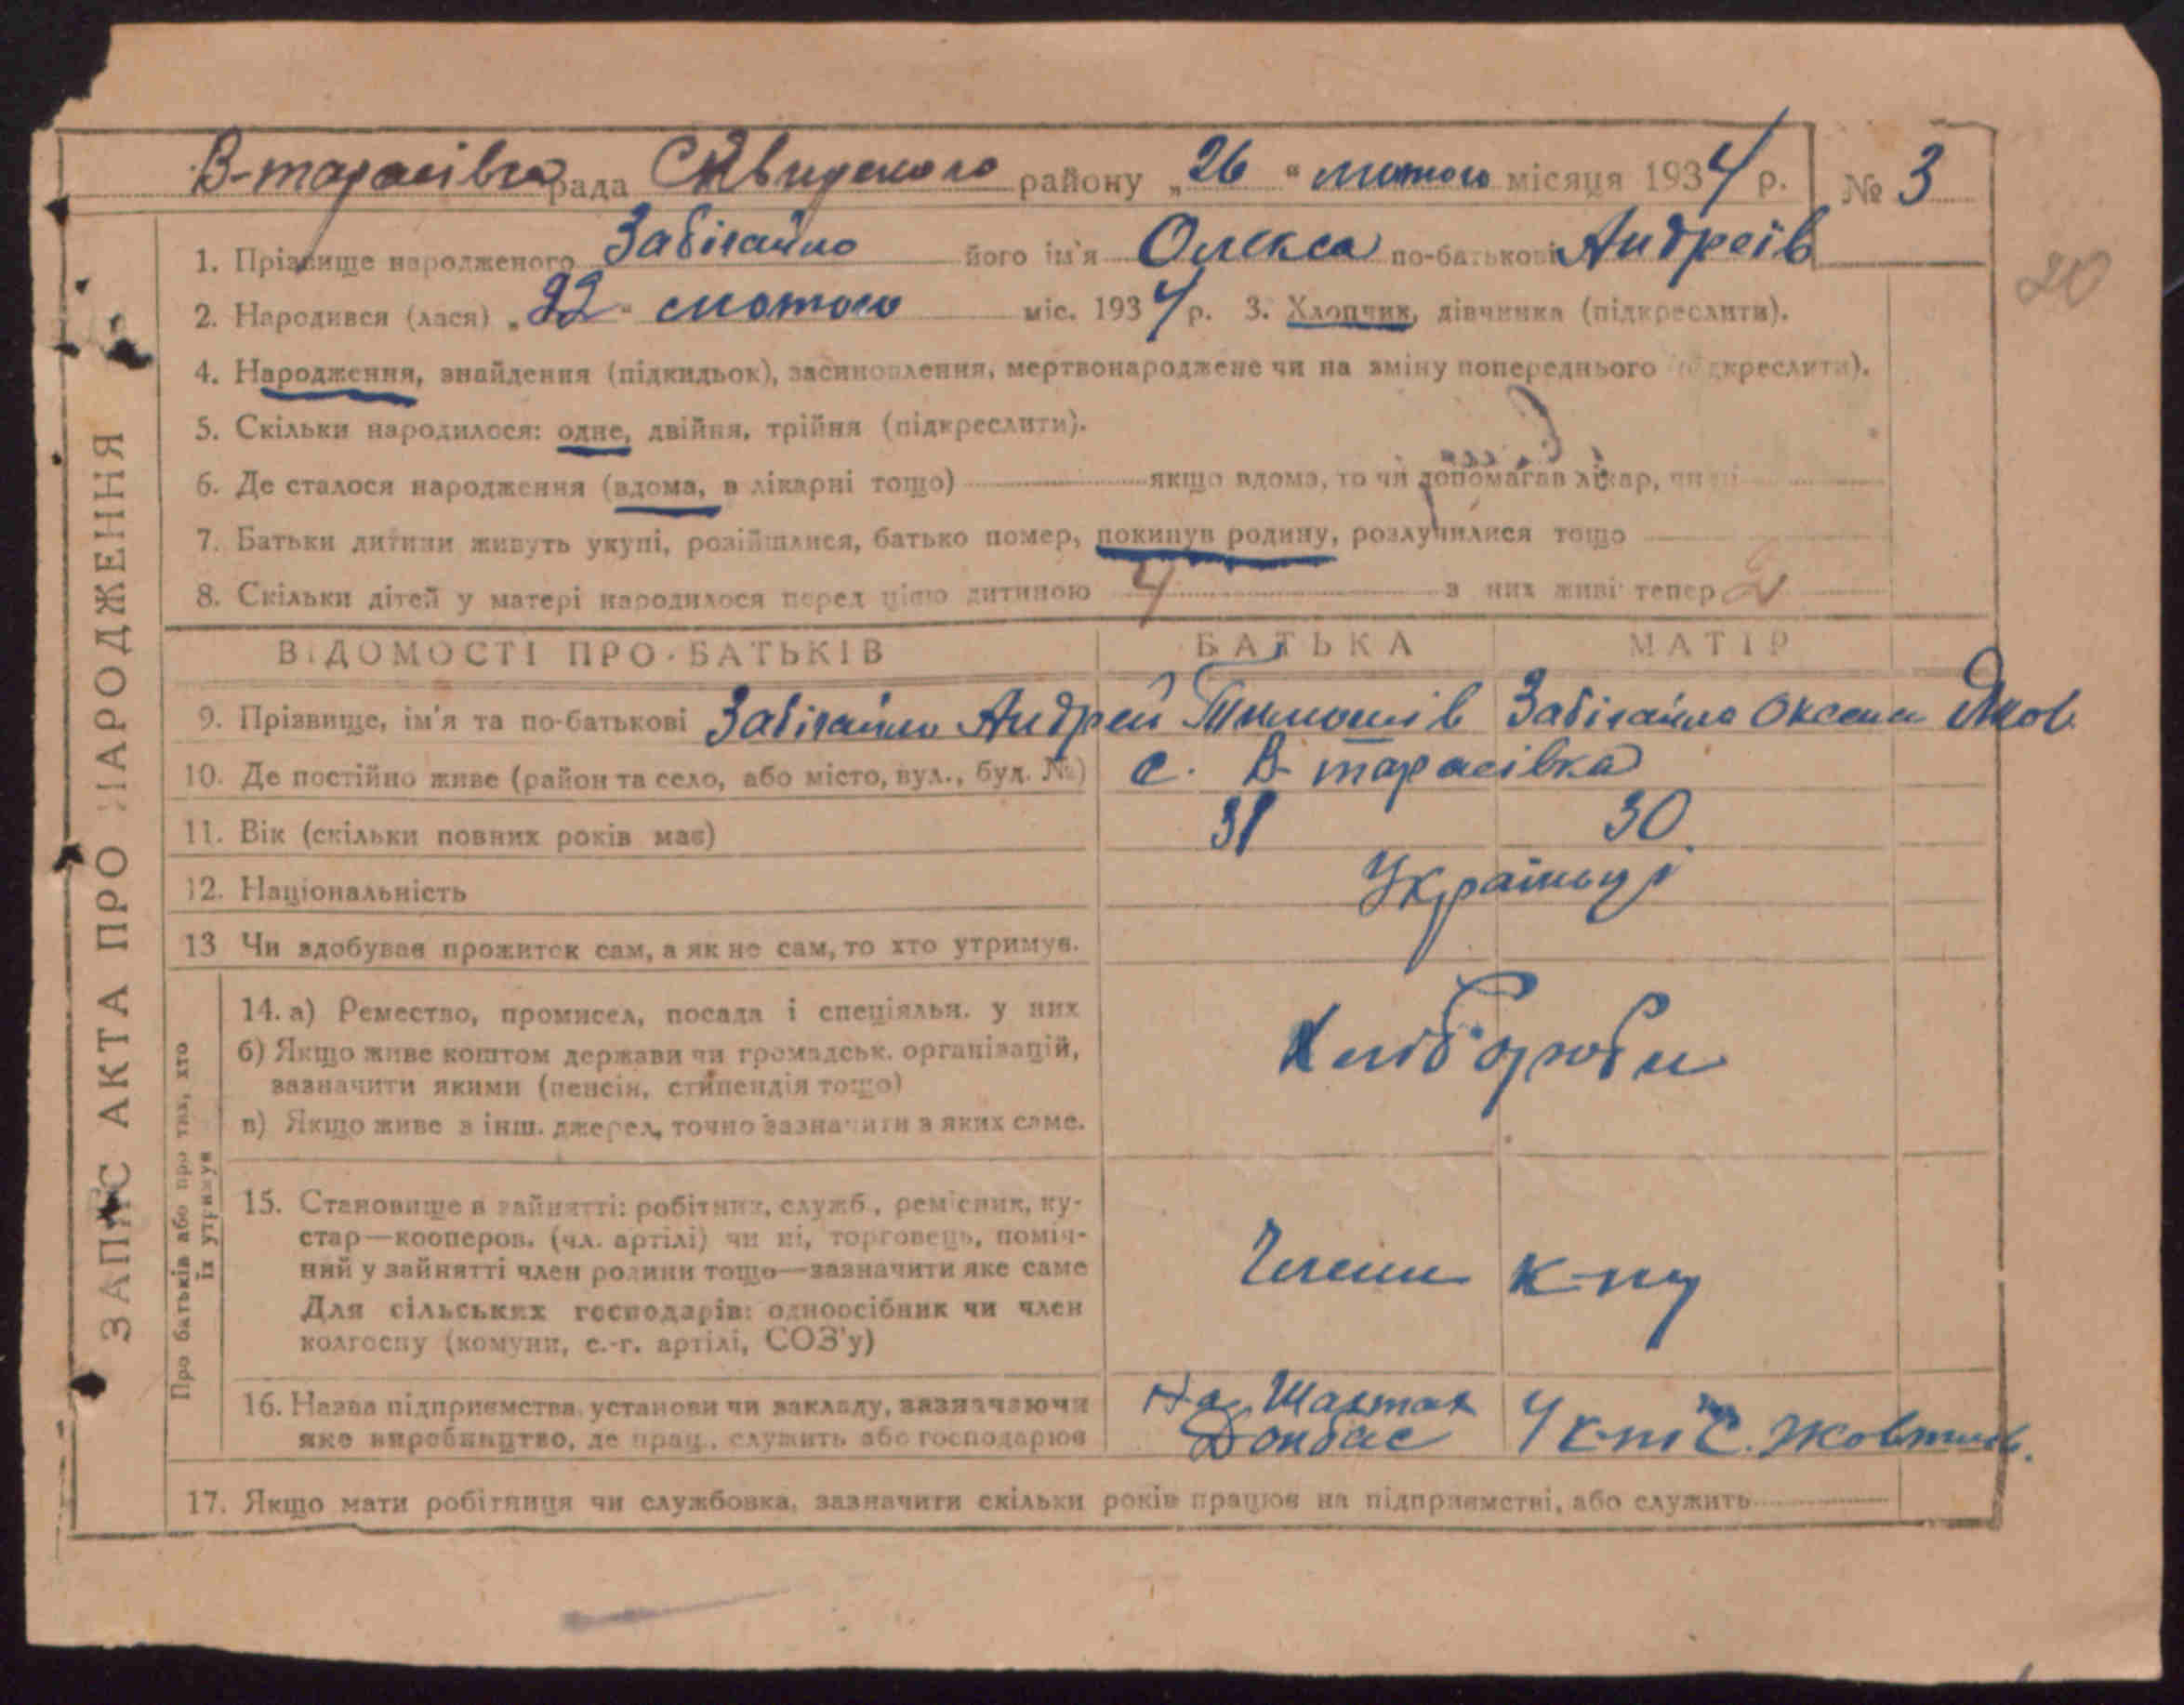 В-тарасівка рада району „26“ лютого місяця 1934 р. № 3
1. Прізвище народженого Забігайло його ім'я Олекса по-батькові Андреїв
20
2. Народився (лася) „22“ лютого міс. 1934 р. 3. Хлопчик, дівчинка (підкреслити).
4. Народження, знайдення (підкидьок), засиновлення, мертвонароджене чи на зміну попереднього (підкреслити).
5. Скільки народилося: одне, двійня, трійня (підкреслити).
6. Де сталося народження (вдома, в лікарні тощо) якщо вдома, то чи допомагав лікар, чи ні
7. Батьки дитини живуть укупі, розійшлися, батько помер, покинув родину, розлучилися тощо
8. Скільки дітей у матері народилося перед цією дитиною 4 з них живі тепер 2
ВІДОМОСТІ ПРО БАТЬКІВ БАТЬКА МАТІР
9. Прізвище, ім'я та по-батькові Забігайло Андрей Тимошів Забігайло Оксана Яков.
10. Де постійно живе (район та село, або місто, вул., буд. №) с. В-тарасівка
11. Вік (скільки повних років має) 31 30
12. Національність Українці
13 Чи здобуває прожиток сам, а як не сам, то хто утримує.
14. а) Ремество, промисел, посада і спеціяльн. у них
б) Якщо живе коштом держави чи громадськ. організацій,
зазначити якими (пенсія, стипендія тощо)
в) Якщо живе з інш. джерел, точно зазначити з яких саме.
Хлібороби
15. Становище в зайнятті: робітник, служб., ремісник, ку-
стар—кооперов. (чл. артілі) чи ні, торговець, поміч-
ний у зайнятті член родини тощо—зазначити яке саме
Для сільських господарів: одноосібник чи член
колгоспу (комуни, с.-г. артілі, СОЗ'у)
Члени к-пу
16. Назва підприємства, установи чи закладу, зазначаючи
яке виробництво, де прац., служить або господарює
На Шахтах
Донбас
17. Якщо мати робітниця чи службовка, зазначити скільки років працює на підприємстві, або служить
ЗАПИС АКТА ПРО НАРОДЖЕННЯ
Про батьків або про тих, хто
їх утримує